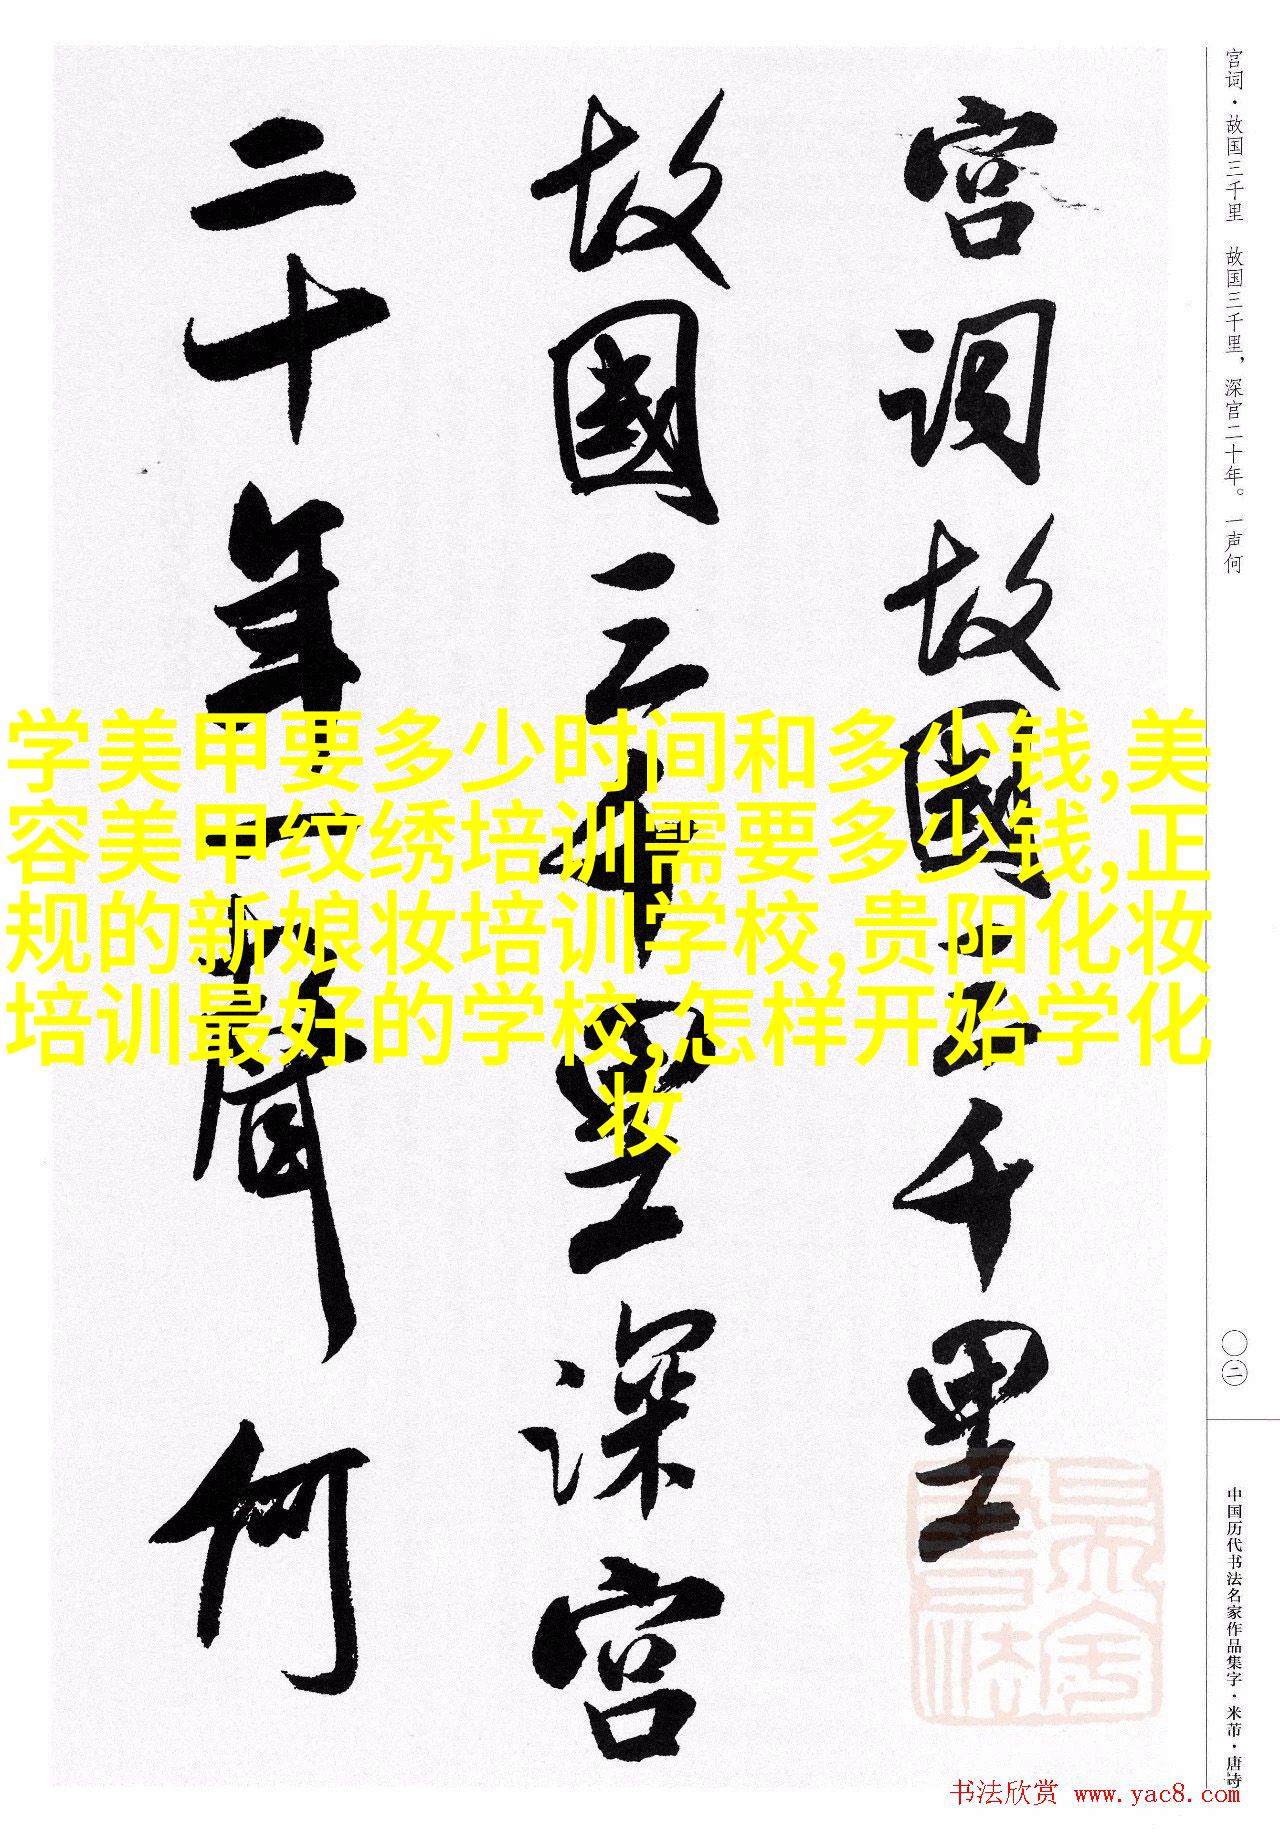 宫词·故国三千里　故国三千里，深宫二十年。一声何
宫词故國三千里
故國三千里深宫
二十年一聲何
学美甲要多少时间和多少钱,美
容美甲纹绣培训需要多少钱,正
规的新娘妆培训学校,贵阳化妆
培训最好的学校,怎样开始学化
妆
〇二
中国历代书法名家作品集字·米芾·唐诗
书法欣赏 www.yac8.com